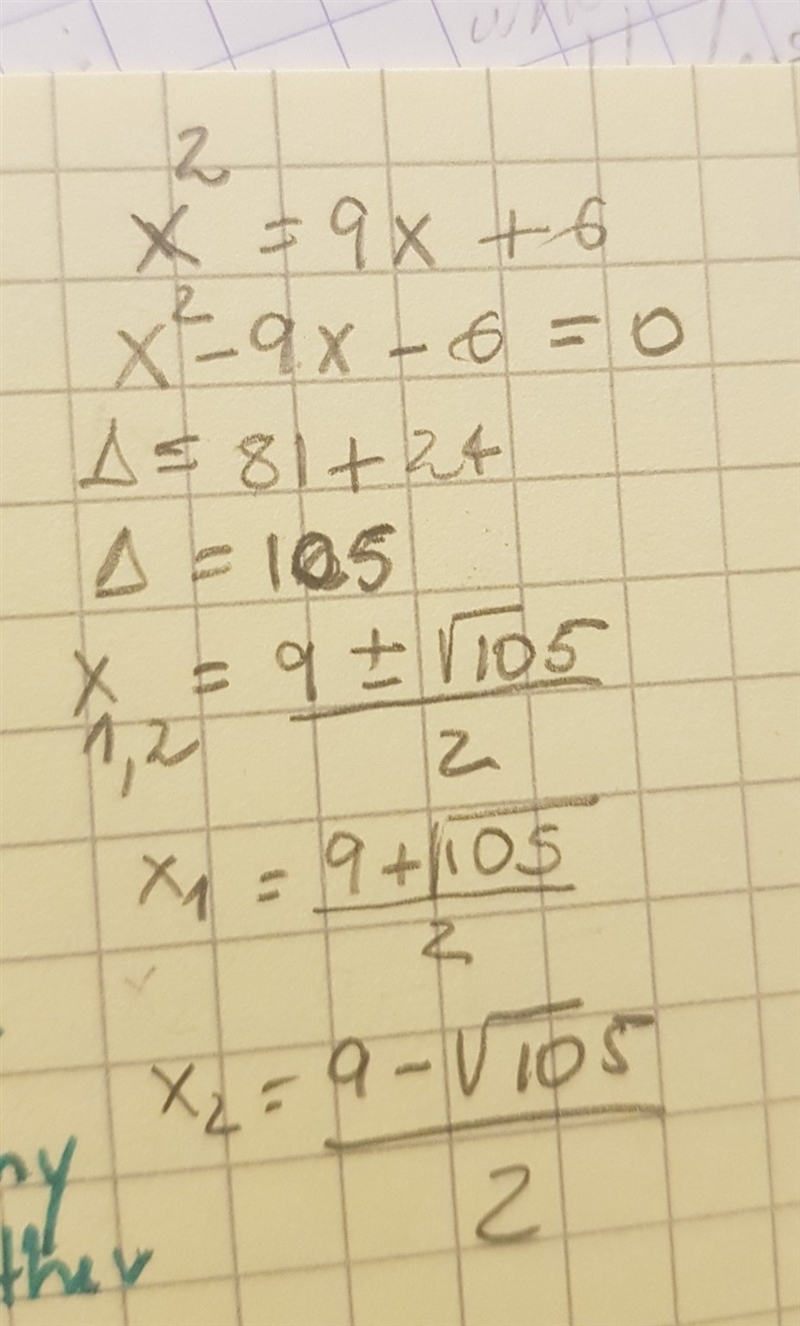 x² = 9x + 6
x² - 9x - 6 = 0
Δ = 81 + 24
Δ = 105
x₁,₂ = (9 ± √105)/2
x₁ = (9 + √105)/2
x₂ = (9 - √105)/2
ny
ther